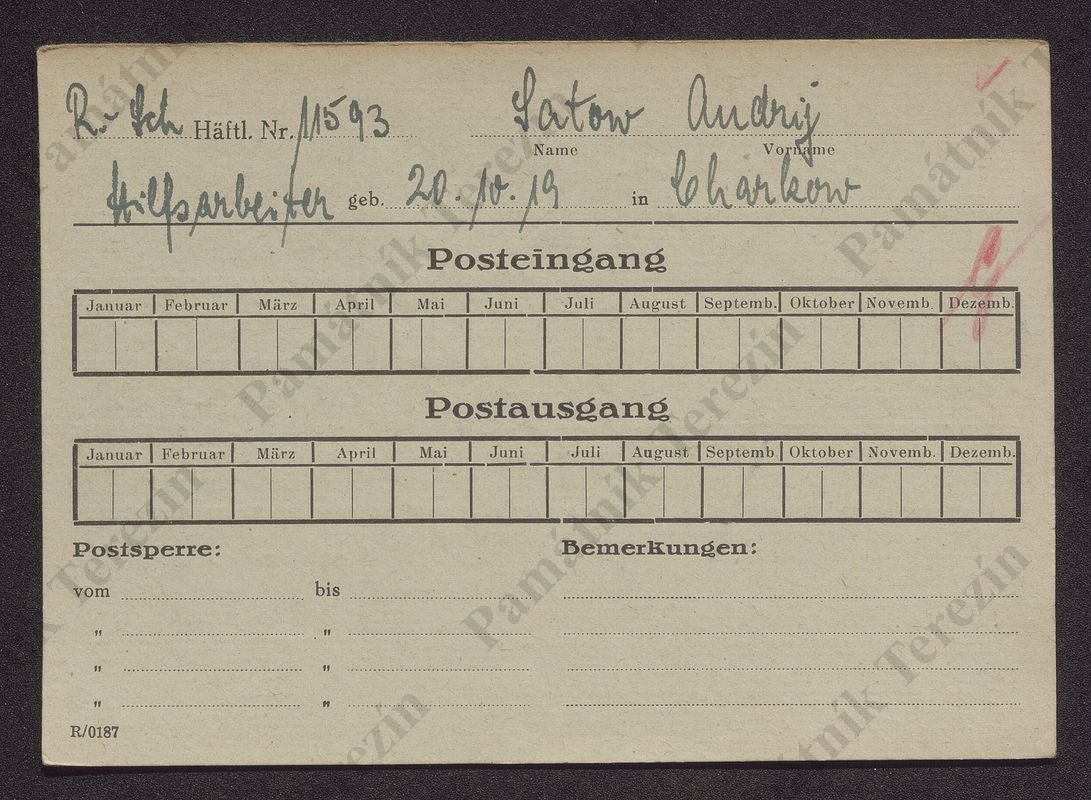 R.- Sch Häftl. Nr. 11593 Satow Andrij
Name Vorname
Hilfsarbeiter geb. 20.10.19 in Charkow
Posteingang
Januar Februar März April Mai Juni Juli August Septemb. Oktober Novemb. Dezemb.
Postausgang
Januar Februar März April Mai Juni Juli August Septemb Oktober Novemb. Dezemb.
Postsperre: Bemerkungen:
vom bis
" "
" "
" "
R/0187
Památník Terezín